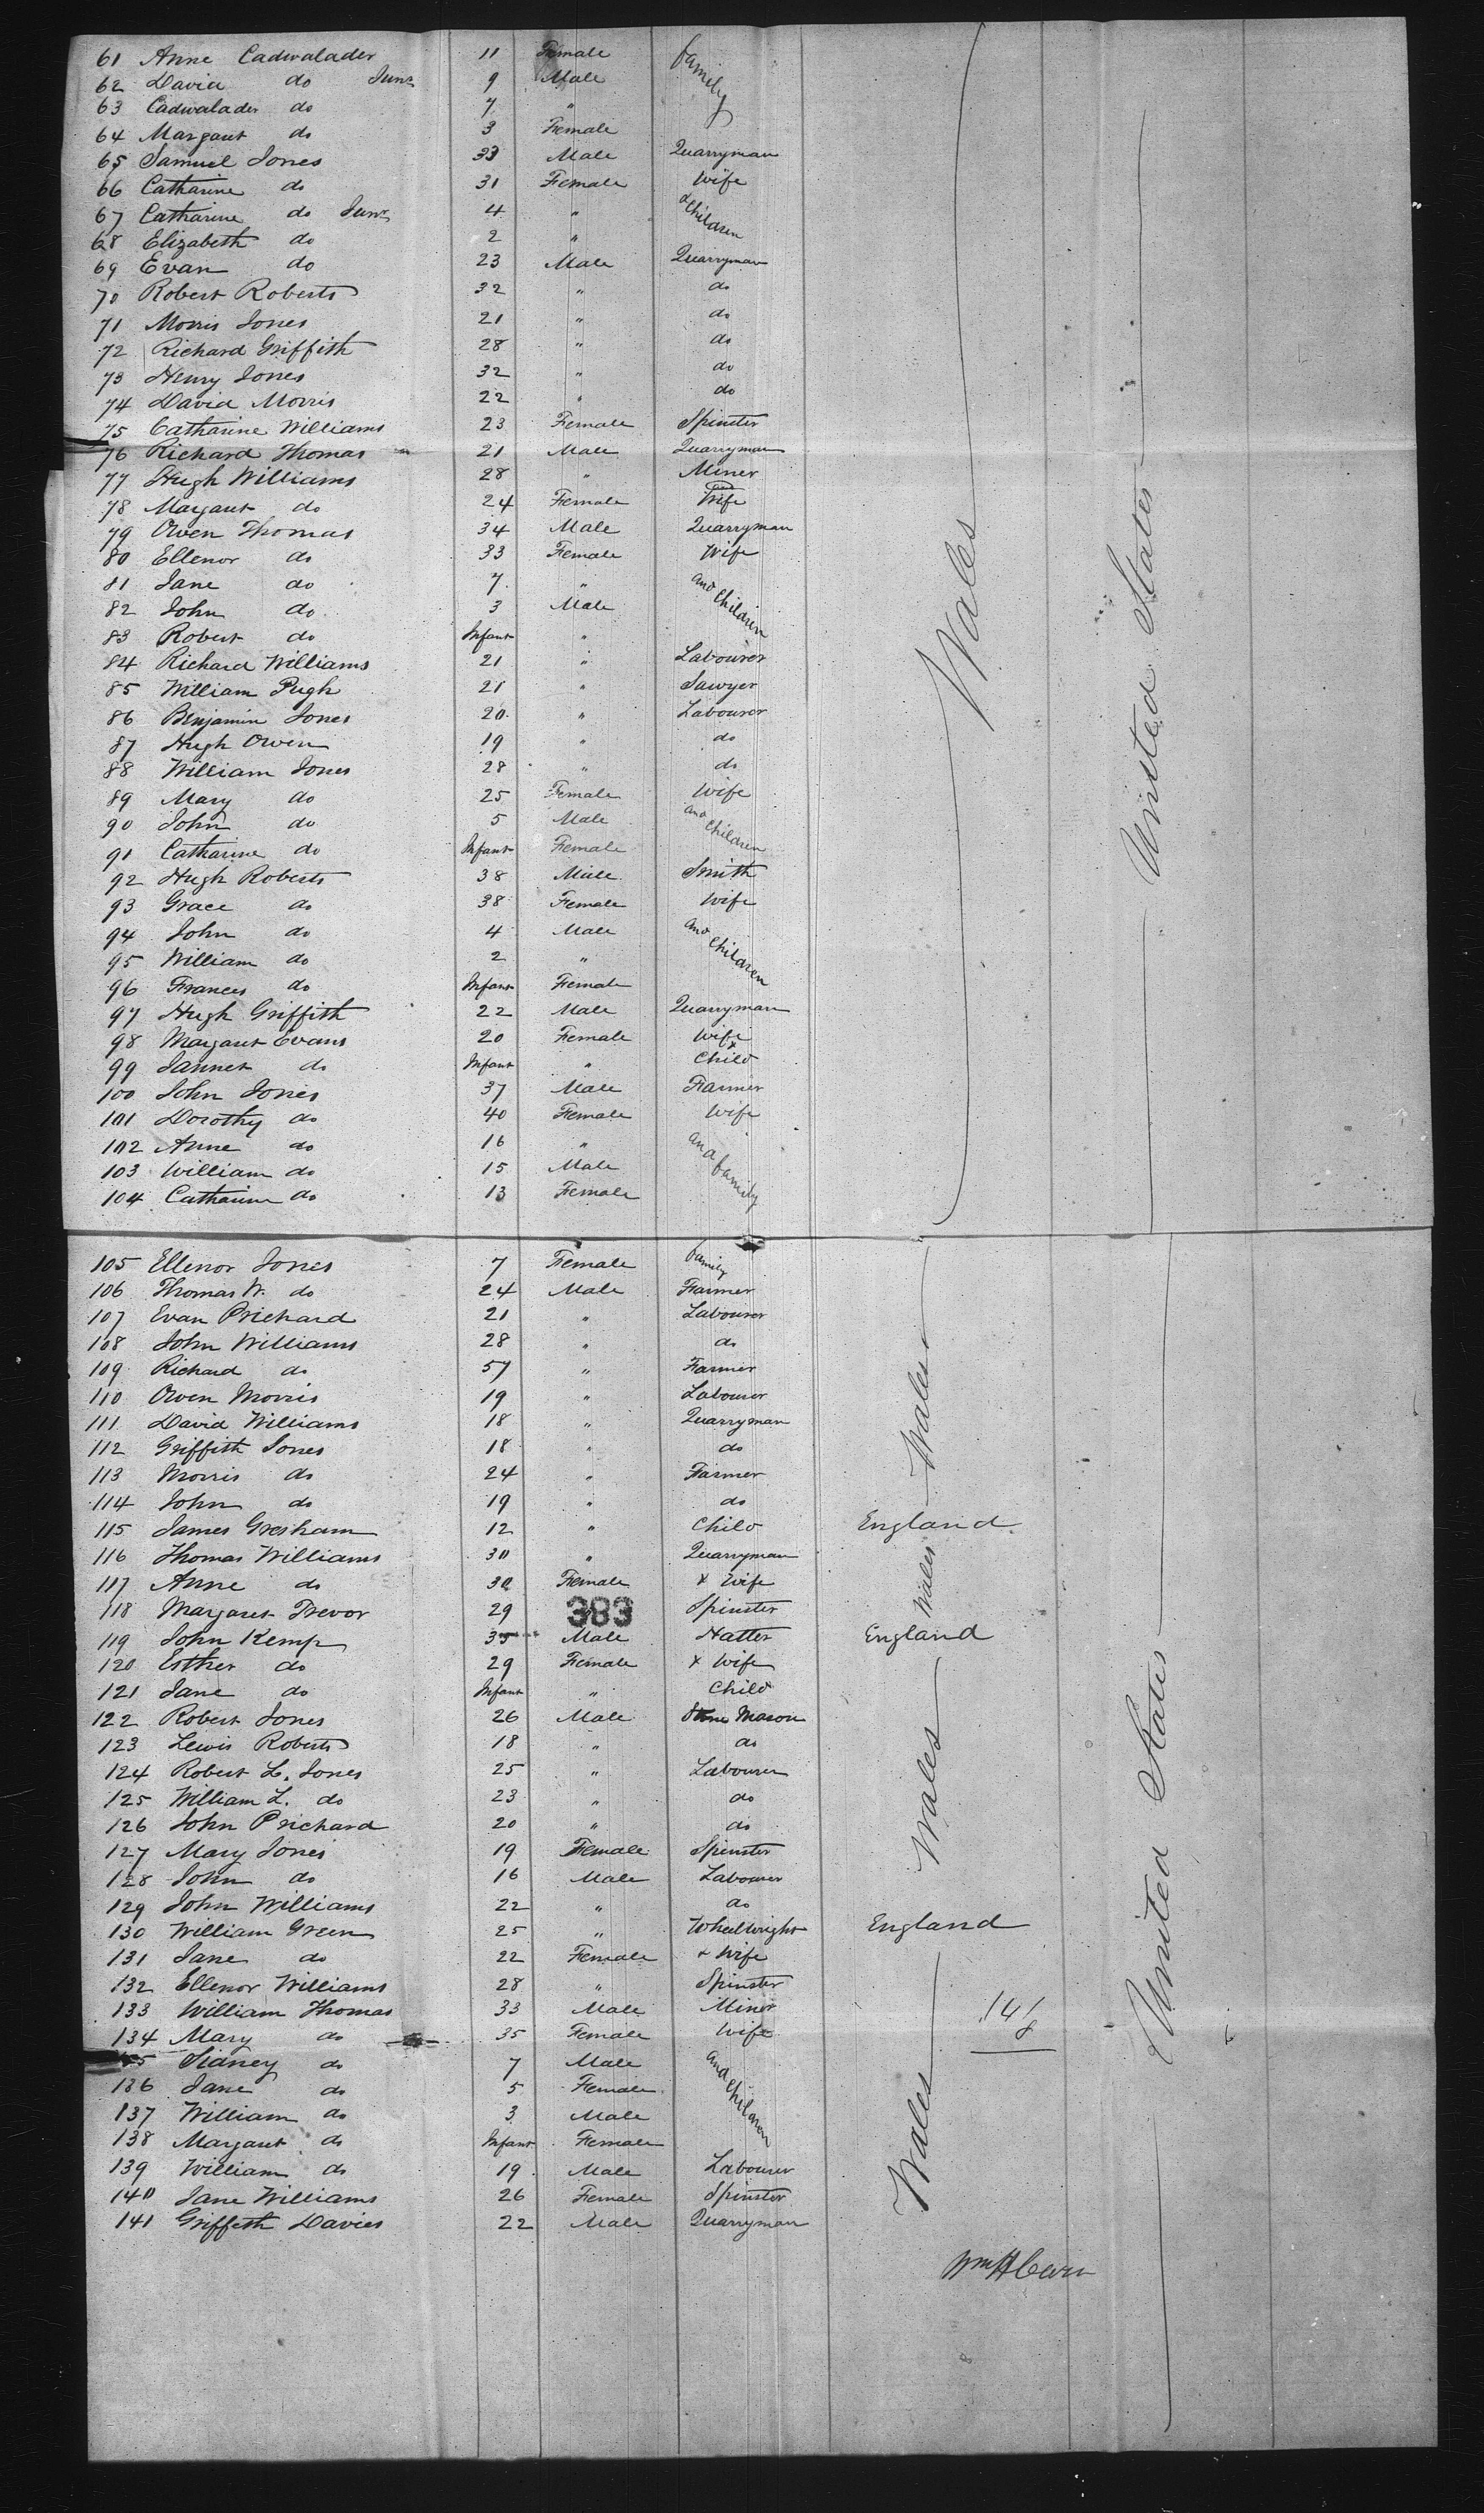 61 Anne Cadwalader 11 Female family
62 David do Junr 9 Male
63 Cadwalader do 7 "
64 Margaret do 3 Female
65 Samuel Jones 33 Male Quarryman
66 Catharine do 31 Female Wife
67 Catharine do Junr 4 " & Children
68 Elizabeth do 2 "
69 Evan do 23 Male Quarryman
70 Robert Roberts 32 " do
71 Morris Jones 21 " do
72 Richard Griffith 28 " do
73 Henry Jones 32 " do
74 David Morris 22 " do
75 Catharine Williams 23 Female Spinster
76 Richard Thomas 21 Male Quarryman
77 Hugh Williams 28 " Miner
78 Margaret do 24 Female and Wife
79 Owen Thomas 34 Male Quarryman
80 Ellenor do 33 Female Wife
81 Jane do 7 " and Children
82 John do 3 Male
83 Robert do Infant "
84 Richard Williams 21 " Labourer
85 William Pugh 21 " Sawyer
86 Benjamin Jones 20 " Labourer
87 Hugh Owen 19 " do
88 William Jones 28 " do
89 Mary do 25 Female Wife
90 John do 5 Male and Children
91 Catharine do Infant Female
92 Hugh Roberts 38 Male Smith
93 Grace do 38 Female Wife
94 John do 4 Male and Children
95 William do 2 "
96 Frances do Infant Female
97 Hugh Griffith 22 Male Quarryman
98 Margaret Evans 20 Female Wife
99 Jannet do Infant " & Child
100 John Jones 37 Male Farmer
101 Dorothy do 40 Female Wife
102 Anne do 16 " and family
103 William do 15 Male
104 Catharine do 13 Female
Wales
United States
105 Ellenor Jones 7 Female family
106 Thomas W. do 24 Male Farmer
107 Evan Prichard 21 " Labourer
108 John Williams 28 " do
109 Richard do 57 " Farmer
110 Owen Morris 19 " Labourer
111 David Williams 18 " Quarryman
112 Griffith Jones 18 " do
113 Morris do 24 " Farmer
114 John do 19 " do
Wales
115 James Gresham 12 " Child England
116 Thomas Williams 30 " Quarryman
117 Anne do 30 Female & Wife
118 Margaret Trevor 29 383 Spinster
Wales
119 John Kemp 35 Male Hatter England
120 Esther do 29 Female & Wife
121 Jane do Infant " Child
122 Robert Jones 26 Male Stone Mason
123 Lewis Roberts 18 " do
124 Robert L. Jones 25 " Labourer
125 William L. do 23 " do
126 John Prichard 20 " do
127 Mary Jones 19 Female Spinster
128 John do 16 Male Labourer
129 John Williams 22 " do
Wales
130 William Green 25 " Wheelwright England
131 Jane do 22 Female & Wife
132 Ellenor Williams 28 " Spinster
133 William Thomas 33 Male Miner
134 Mary do 35 Female Wife
135 Sidney do 7 Male and Children
136 Jane do 5 Female
137 William do 3 Male
138 Margaret do Infant Female
139 William do 19 Male Labourer
140 Jane Williams 26 Female Spinster
141 Griffeth Davies 22 Male Quarryman
Wales
United States